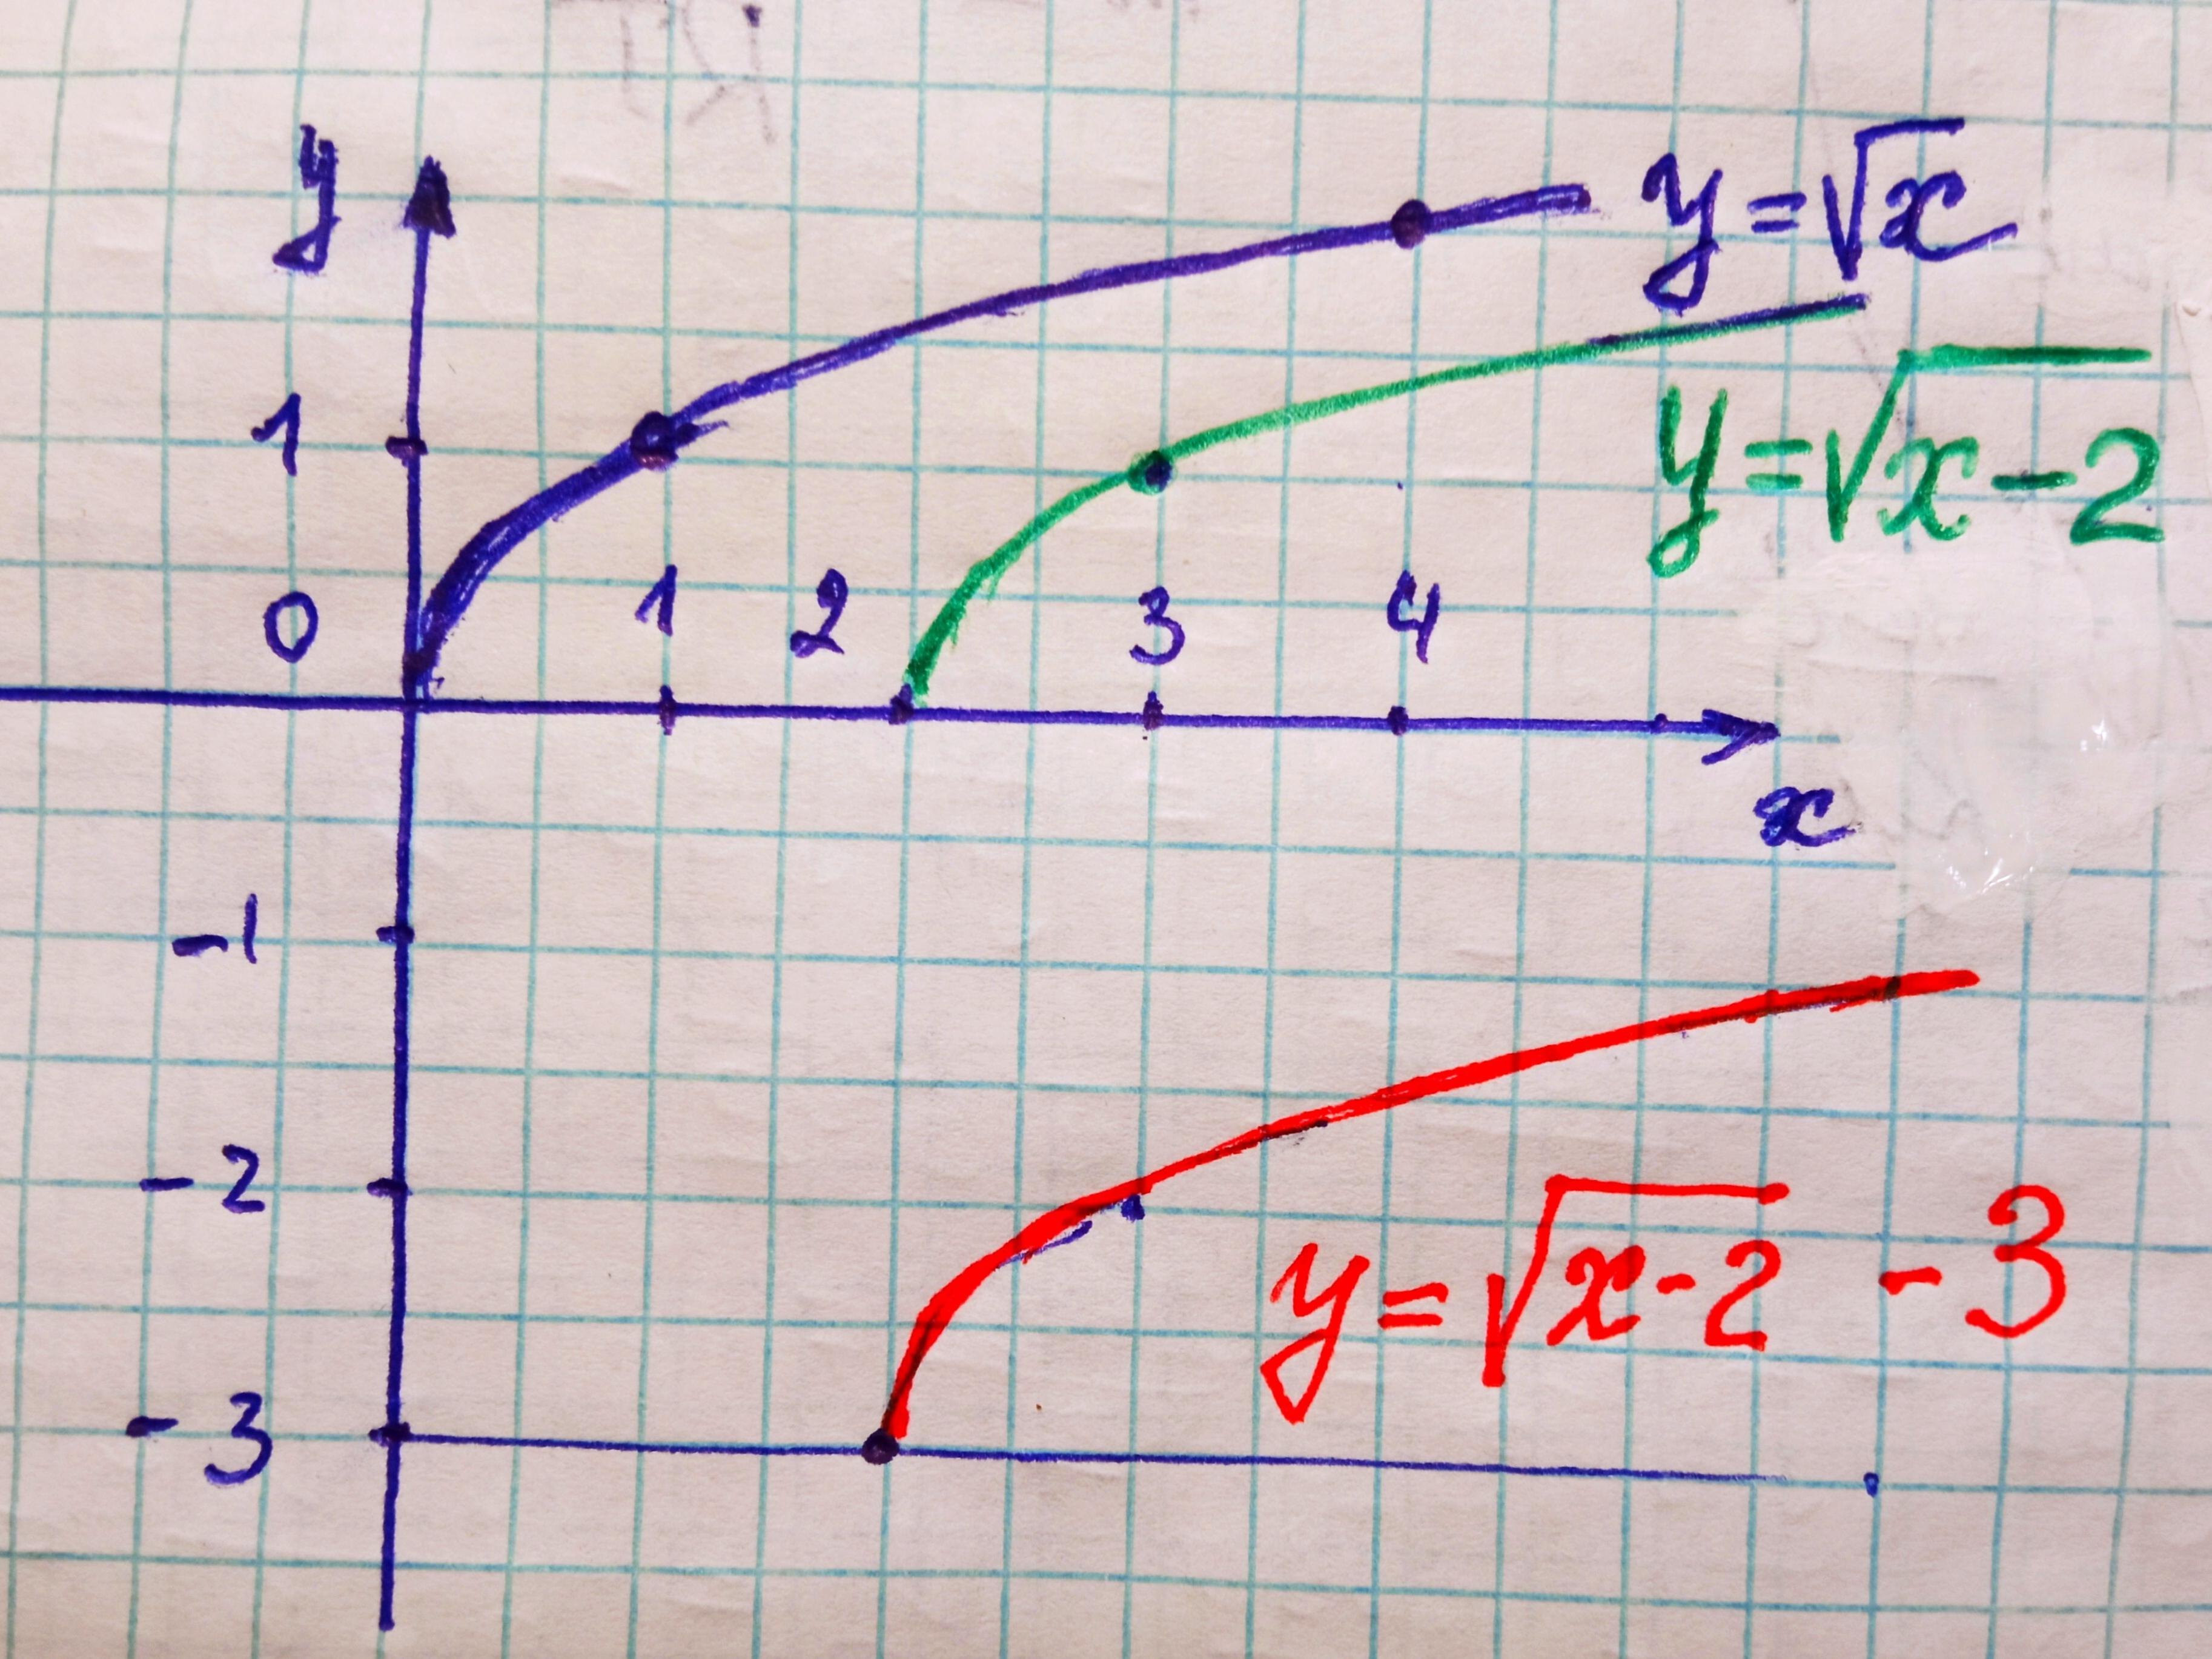 y
y=√x
1
y=√x-2
0 1 2 3 4
x
-1
-2
y=√x-2 -3
-3